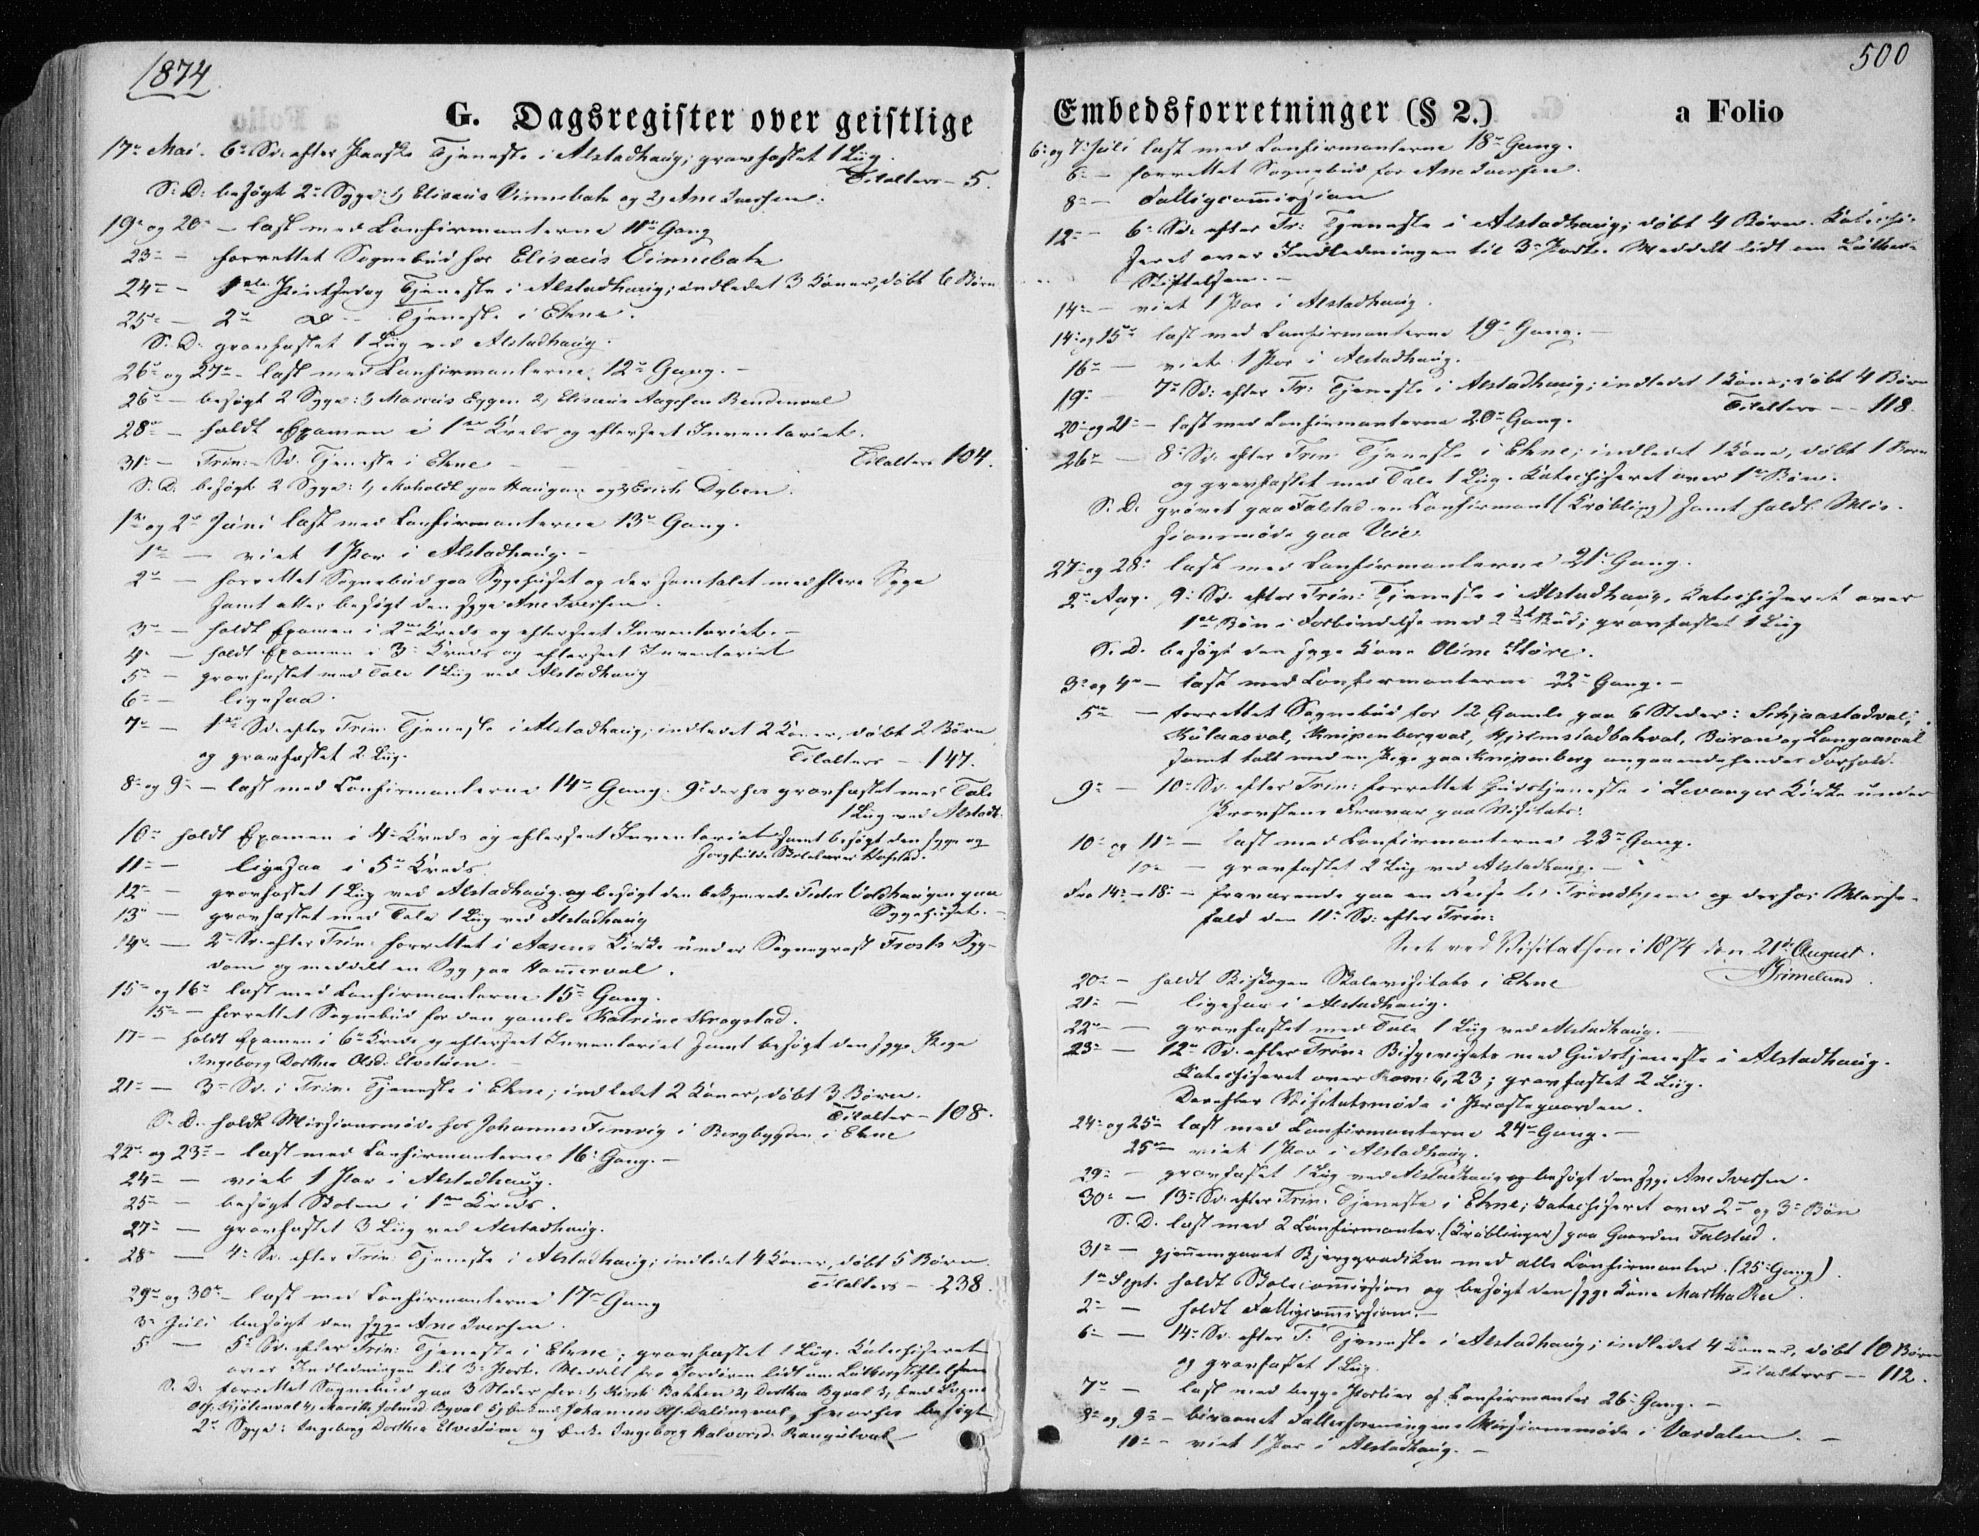 1874
G. Dagsregister over geistlige
17de Mai. 6te Sd. efter Paaske Tjeneste i Alstadhaug; gravfæstet 1 Liig.
Tilalters - 5.
S. D. besøgt 2de Syge: 1, Elisæus Vinnebak og 2, Ane Iversen.
19de og 20de - læst med Confirmanterne 11te Gang
23de - forrettet Sognebud for Elisæus Vinnebak
24de - 1ste Pintsedag Tjeneste i Alstadhaug; indledet 3 Koner, døbt 6 Børn
25de - 2den D - Tjeneste i Ekne.
S. D. gravfæstet 1 Liig ved Alstadhaug.
26de og 27de - læst med Confirmanterne 12te Gang. -
26de - besøgt 2 Syge: 1, Marcus Eggen 2, Elisæus Aagesen
28de - holdt Examen i 1ste Kreds og efterseet Inventariet.
31te - Trin: Sd. Tjeneste i Ekne - Tilalters 104.
S. D. besøgt 2 Syge: 1, paa Haugan og 2,
1ste og 2den Juni læst med Confirmanterne 13de Gang.
1ste - viet 1 Par i Alstadhaug. -
2den - forrettet Sognebud paa Sygehuset og der samtalet med flere Syge
samt atter besøgt den syge Ane Iversen.
3de - holdt Examen i 2den Kreds og efterseet Inventariet. -
4de - holdt Examen i 3de Kreds og efterseet Inventariet
5te - gravfæstet med Tale 1 Liig ved Alstadhaug
6te - ligesaa.
7de - 1ste Sd. efter Trin. Tjeneste i Alstadhaug, indledet 2 Koner, døbt 2 Børn
og gravfæstet 2 Liig. Tilalters - 147.
8de og 9de - læst med Confirmanterne 14de Gang. 9de derhos gravfæstet med Tale
1 Liig ved Alstadh.
10de holdt Examen i 4de Kreds og efterseet Inventariet samt besøgt den syge og
sorgfulde Skolelærer Hofstad.
11te - ligesaa i 5te Kreds.
12te - gravfæstet 1 Liig ved Alstadhaug og besøgt den bekymrede Peder Voldhaugen paa
Sygehuset. -
13de - gravfæstet med Tale 1 Liig ved Alstadhaug
14de - 2den Sd. efter Trin. forrettet i Aasens Kirke under Sognepræst Frosts Syg-
dom og meddelt en Syg paa
15de og 16de læst med Confirmanterne 15de Gang.
15de - forrettet Sognebud for den gamle Katrine Krogstad.
17de - holdt Examen i 6te Kreds og efterseet Inventariet samt besøgt den syge Pige
Ingeborg Dorthea Olsd. Elvestuen.
21de - 3de Sd. i Trin. Tjeneste i Ekne; indledet 2 Koner, døbt 3 Børn.
Tilalter - 108.
S. D. holdt Missionsmøde hos Johannes i Bergbygden i Ekne
22de og 23de - læst med Confirmanterne 16de Gang. -
24de - viet 1 Par i Alstadhaug.
25de - besøgt Skolen i 1ste Kreds.
27de - gravfæstet 3 Liig ved Alstadhaug.
28de - 4de Sd. efter Trin. Tjeneste i Alstadhaug; indledet 4 Koner, døbt 5 Børn.
Tilalters - 238.
29de og 30te - læst med Confirmanterne 17de Gang
3de Juli besøgt den syge Ane Iversen.
5 - 5te Sd. efter Trin: Tjeneste i Ekne; gravfæstet 1 Liig. Katechiseret
over Indledningen til 3de Part. Meddelt fra Chordøren lidt om Lutherstiftelsen
S. D. forrettet Sognebud paa 3 Steder for: 1, Bakken 2, Dorthea Byval 3,
Johannes hvorhos besøgt
2de Syge: Ingeborg Dorthea Elvestuen og Enke Ingeborg Halvorsd.
500
Embedsforretninger (§ 2.) a Folio
6te og 7de Juli læst med Confirmanterne 18de Gang.
6te - forrettet Sognebud for Ane Iversen.
8de - Fattigcommission
12te - 6te Sd. efter Tr: Tjeneste i Alstadhaug; døbt 4 Børn. Katechi-
seret over Indledningen til 3de Part. Meddelt lidt om Luther-
Stiftelsen. -
14de - viet 1 Par i Alstadhaug.
14de og 15de læst med Confirmanterne 19de Gang. -
16de - viet 1 Par i Alstadhaug.
19de - 7de Sd: efter Tr: Tjeneste i Alstadhaug; indledet 1 Kone; døbt 4 Børn
Tilalters - - 118.
20de og 21de - læst med Confirmanterne 20de Gang.
26de - 8de Sd. efter Trin. Tjeneste i Ekne; indledet 1 Kone, døbt 1 Barn
og gravfæstet med Tale 1 Liig. Katechiseret over 1ste Bøn.
S. D. prøvet paa Falstad en Confirmant (Krøbling) samt holdt Mis-
sionsmøde paa Veie.
27de og 28de læst med Confirmanterne 21de Gang.
2den Aug. 9de Sd. efter Trin: Tjeneste i Alstadhaug, Katechiseret over
1ste Bøn i Forbindelse med 2det Bud; gravfæstet 1 Liig
S. D. besøgt den syge Kone Oline Støre.
3de og 4de - læst med Confirmanterne 22de Gang. -
5te - forrettet Sognebud for 12 Gamle paa 6 Steder: Schjaastadval,
Knipenbergval, Buran og
samt talt med en Pige paa Knipenberg angaaende hendes Forhold.
9de - 10de Sd. efter Trin: forrettet Gudstjeneste i Levanger Kirke under
Provstens Fravær paa Visitats.
10de og 11te - læst med Confirmanterne 23de Gang.
10de - gravfæstet 2 Liig ved Alstadhaug. -
Fra 14de - 18de - fraværende paa en Reise til Trondhjem og derfor Messe-
fald den 11te Sd: efter Trin:
Seet ved Visitatsen i 1874 den 21de August.
Grimelund.
20de - holdt Biskopen Skolevisitats i Ekne
21de - ligesaa i Alstadhaug.
22de - gravfæstet med Tale 1 Liig ved Alstadhaug. -
23de - 12te Sd. efter Trin: Bispevisitats med Gudstjeneste i Alstadhaug.
Katechiseret over Rom: 6, 23; gravfæstet 2 Liig.
Derefter Visitatsmøde i Præstegaarden.
24de og 25de læst med Confirmanterne 24de Gang. -
25de - viet 1 Par i Alstadhaug.
29de - gravfæstet 1 Liig ved Alstadhaug og besøgt den syge Ane Iversen.
30te - 13de Sd. efter Trin. Tjeneste i Ekne; katechiseret over 2den og 3de Bøn
S. D. læst med 2 Confirmanter (Krøblinger) paa Gaarden Falstad.
31te - gjennemgaaet Bjergprædiken med alle Confirmanter. (25de Gang).
1ste Sept. holdt Skolecommission og besøgt den syge Kone Martha Ree.
2den - holdt Fattigcommission. -
6te - 14de Sd. efter T: Tjeneste i Alstadhaug; indledet 4 Koner, døbt 10 Børn
og gravfæstet 1 Liig. Tilalters - 112.
7de - læst med begge Partier af Confirmanter 26de Gang. -
8de og 9de - bivaanet Fællesforeningens Missionsmøde i Værdalen. -
10de - viet 1 Par i Alstadhaug. -